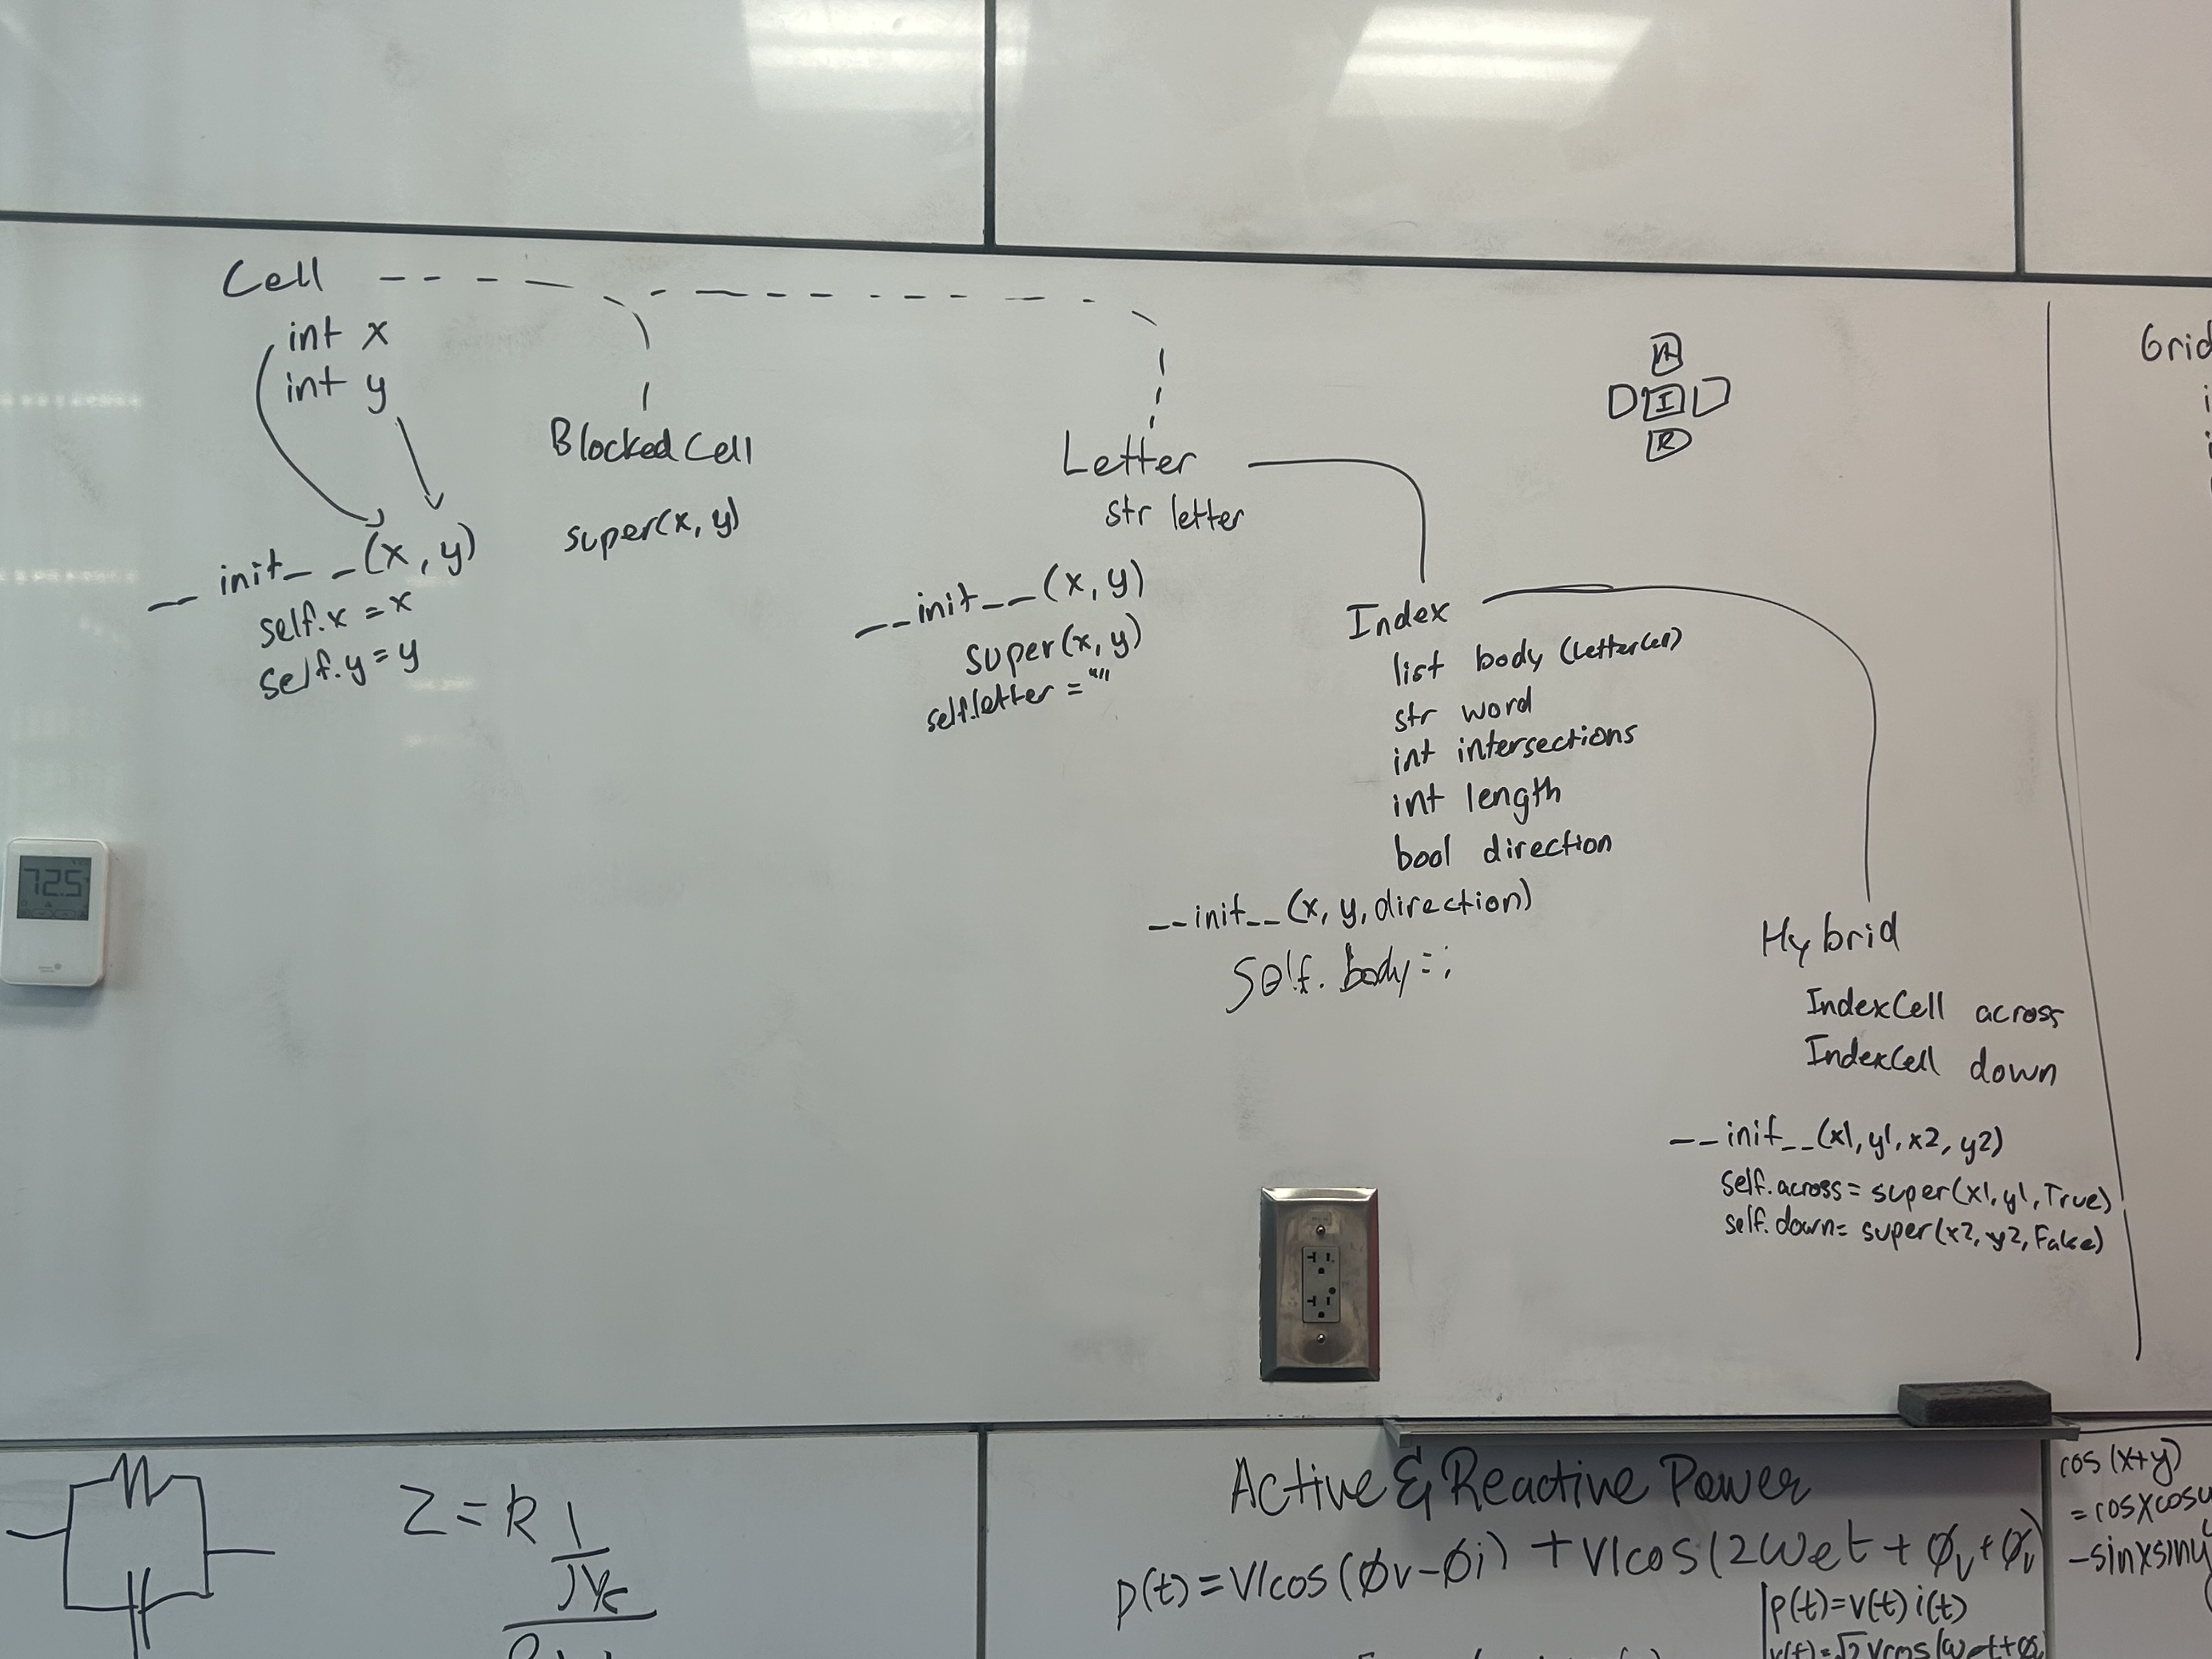 Cell
int x
int y
__init__(x, y)
self.x = x
self.y = y
BlockedCell
super(x, y)
Letter
str letter
__init__(x, y)
super(x, y)
self.letter = ""
A
I
R
Index
list body (LetterCell)
str word
int intersections
int length
bool direction
__init__(x, y, direction)
Self. body =
Hybrid
IndexCell across
IndexCell down
__init__(x1, y1, x2, y2)
self.across = super(x1, y1, True)
self.down = super(x2, y2, False)
Grid
72.5
Z = R 1
Active & Reactive Power
p(t) = VIcos(øv-øi) + VIcos(2wet + øv +
p(t)=v(t) i(t)
cos(x+y)
= cosxcosy
-sinxsiny